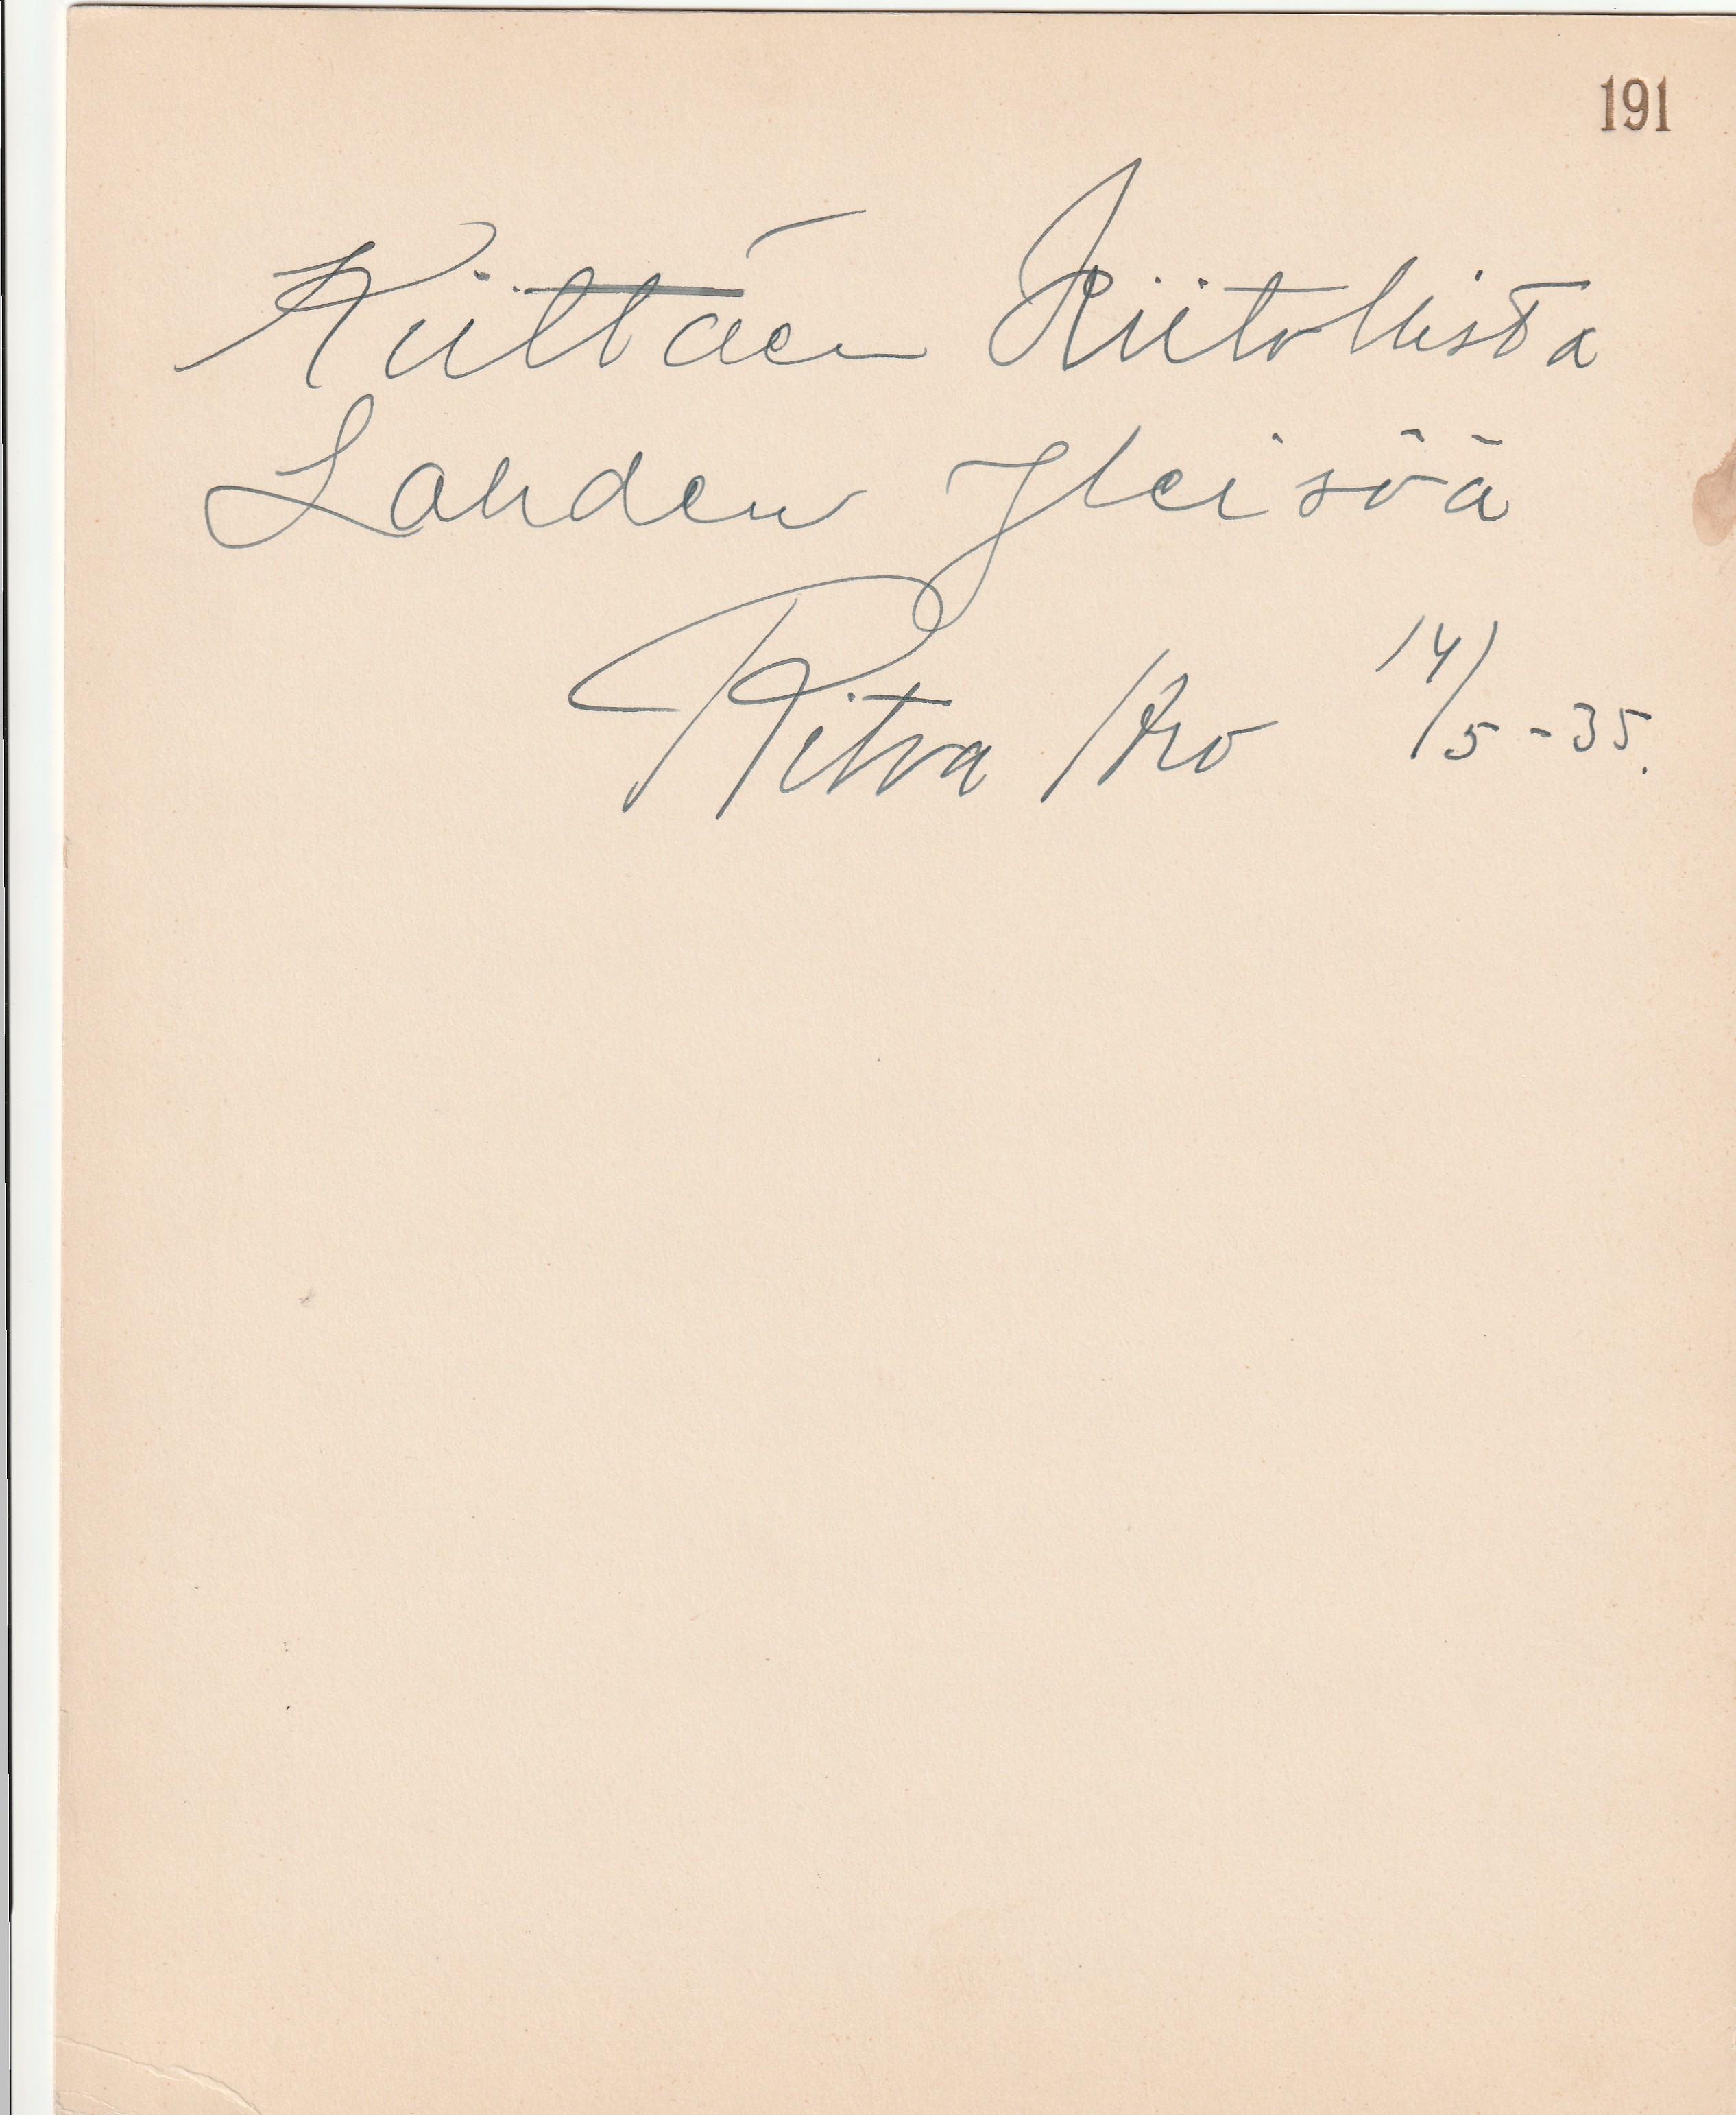 191
Kiittäen Kiitollista
Lahden Yleisöä
Ritva Aro 14/5-35.